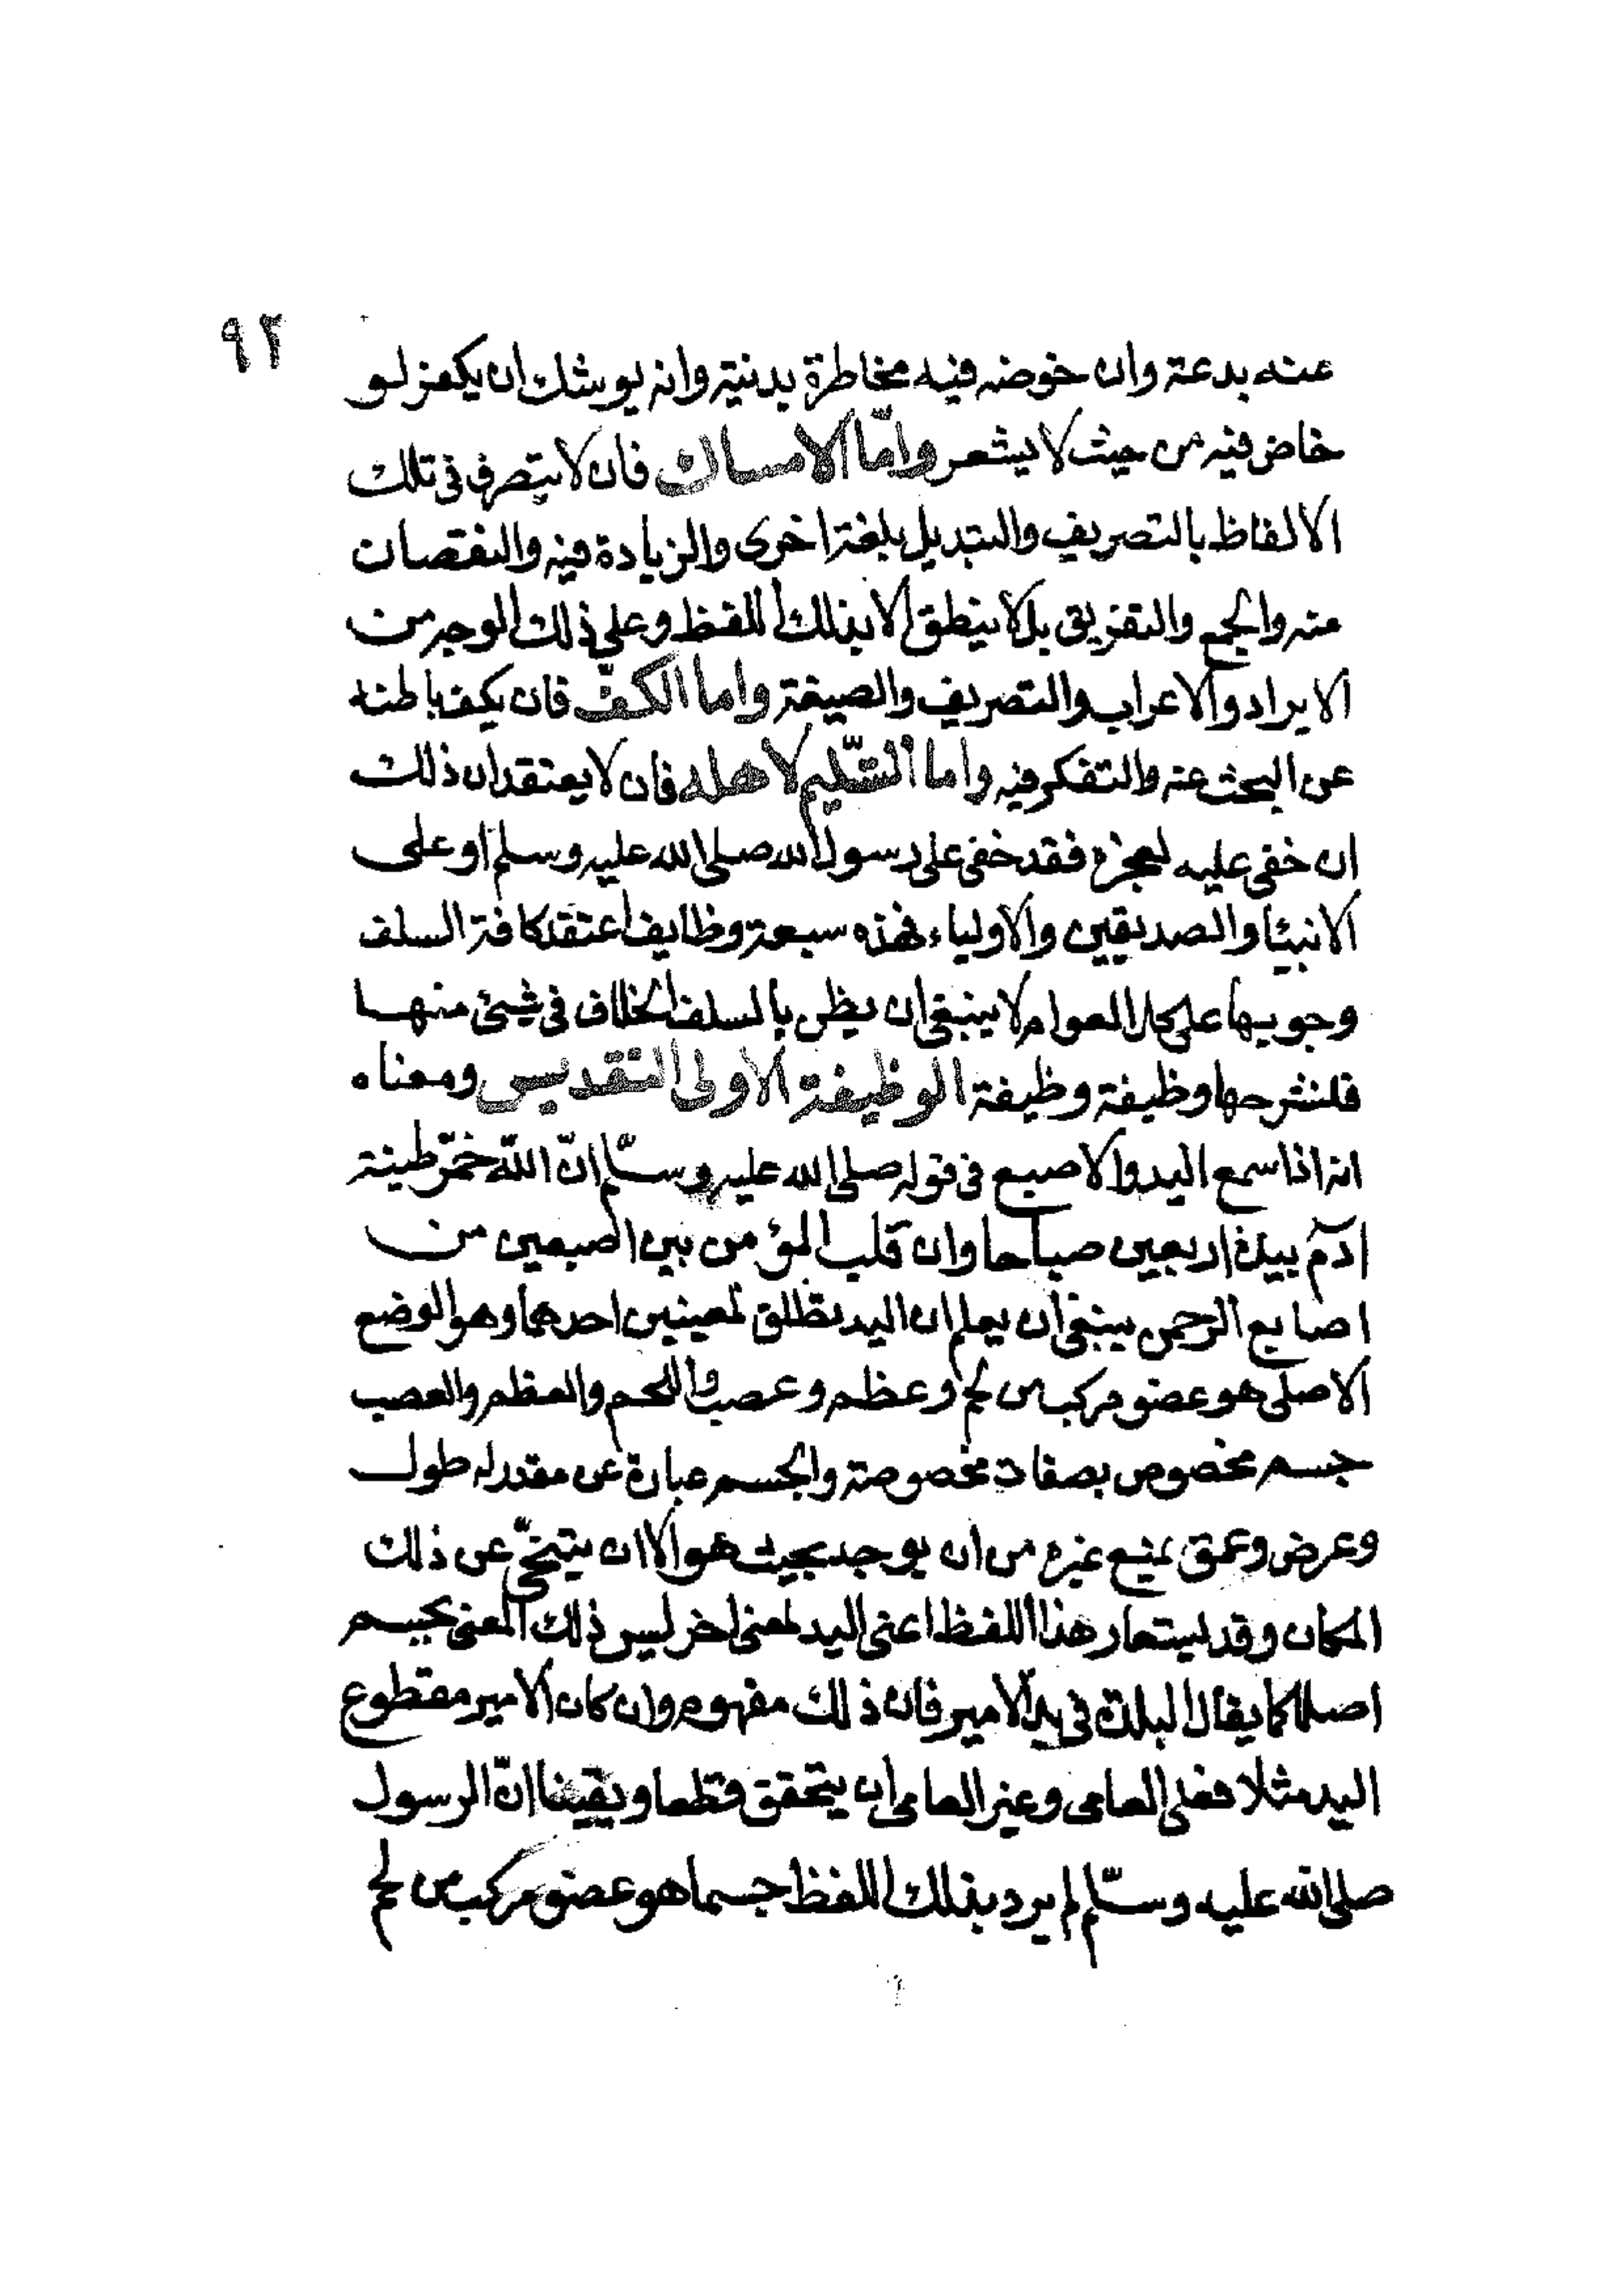 ٩٢
عنه بدعة وان خوضه فيه مخاطرة بدينه وانه يوشك ان يكفر لو
خاض فيه من حيث لا يشعر وامّا الامساك فان لا يتصرف في تلك
الالفاظ بالتصريف والتبديل بلغة اخرى والزيادة فيه والنقصان
منه والجمع والتفريق بل لا ينطق الا بذلك اللفظ وعلى ذلك الوجه من
الايراد والاعراب والتصريف والصيغة واما الكفّ فان يكف باطنه
عن البحث عنه والتفكر فيه واما التسّليم لاهله فان لا يعتقد ان ذلك
ان خفى عليه لعجزه فقد خفى على رسول الله صلى الله عليه وسلم او على
الانبيا والصديقين والاولياء فهذه سبعة وظايف اعتقد كافة السلف
وجوبها على كل العوام لا ينبغي ان يظن بالسلف الخلاف في شيئ منها
فلنشرحها وظيفة وظيفة الوظيفة الاولى التقديس ومعناه
انه اذا سمع اليد والاصبع في قوله صلى الله عليه وسلّم انّ اللّه خمّر طينة
آدم بيده اربعين صباحا وان قلب المؤمن بين اصبعين من
اصابع الرحمن ينبغي ان يعلم ان اليد تطلق لمعنيين احدهما وهو الوضع
الاصلى هو عضو مركب من لحم وعظم وعصب واللحم والعظم والعصب
جسم مخصوص بصفات مخصوصة والجسم عبارة عن مقدر له طول
وعرض وعمق يمنع غيره من ان يوجد بحيث هو الا ان يتنحّى عن ذلك
المكان وقد يستعار هذا اللفظ اعنى اليد لمعنى اخر ليس ذلك المعنى بجسم
اصلا كما يقال البلدة في يد الامير فان ذلك مفهوم وان كان الامير مقطوع
اليد مثلا فعلى العامى وغير العامى ان يتحقق قطعا ويقينا انّ الرسول
صلى الله عليه وسلّم لم يرد بذلك اللفظ جسما هو عضو مركب من لحم